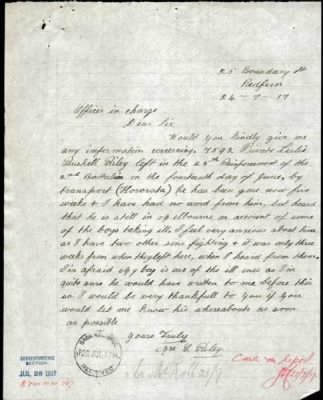 25 Boundary St
Redfern
24-7-17
Officer in charge
Dear Sir
Would you kindly give me
any information concerning, 7592 Private Leslie
Riley left in the 25th Reinforcement of the
2nd Battalion in the fourteenth day of June, by
transport (Hororata) he has been gone now five
weeks & I have had no word from him, but heard
that he is still in Melbourne on account of some
of the boys taking ill, I feel very anxious about him
as I have two other sons fighting & it was only three
weeks from when they left here, when I heard from them.
I'm afraid my boy is one of the ill ones as I'm
quite sure he would have written to me before this
so I would be very thankfull to you if you
would let me know his whereabouts as soon
as possible
Yours Truly
Mrs Riley
RECEIVED
SECTION
JUL 28 1917